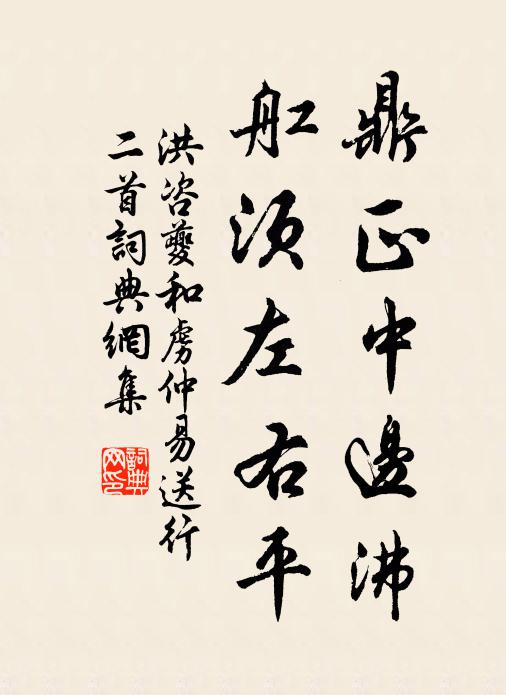 鼎正中邊沸
舡須左右平
洪咨夔和虜仲易送行
二首詞典網集
詞典网印